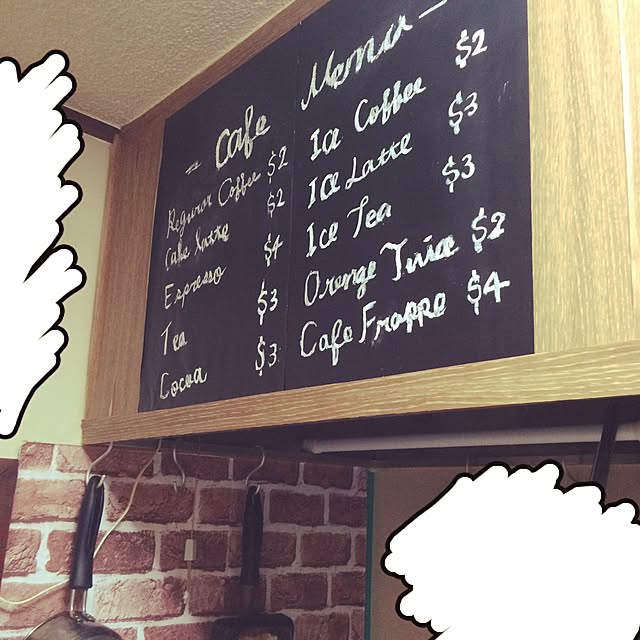 - Cafe Menu -
Regular Coffee $2
Cafe Latte $2
Espresso $4
Tea $3
Cocoa $3
Ice Coffee $2
Ice Latte $3
Ice Tea $3
Orenge Juice $2
Cafe Frappe $4